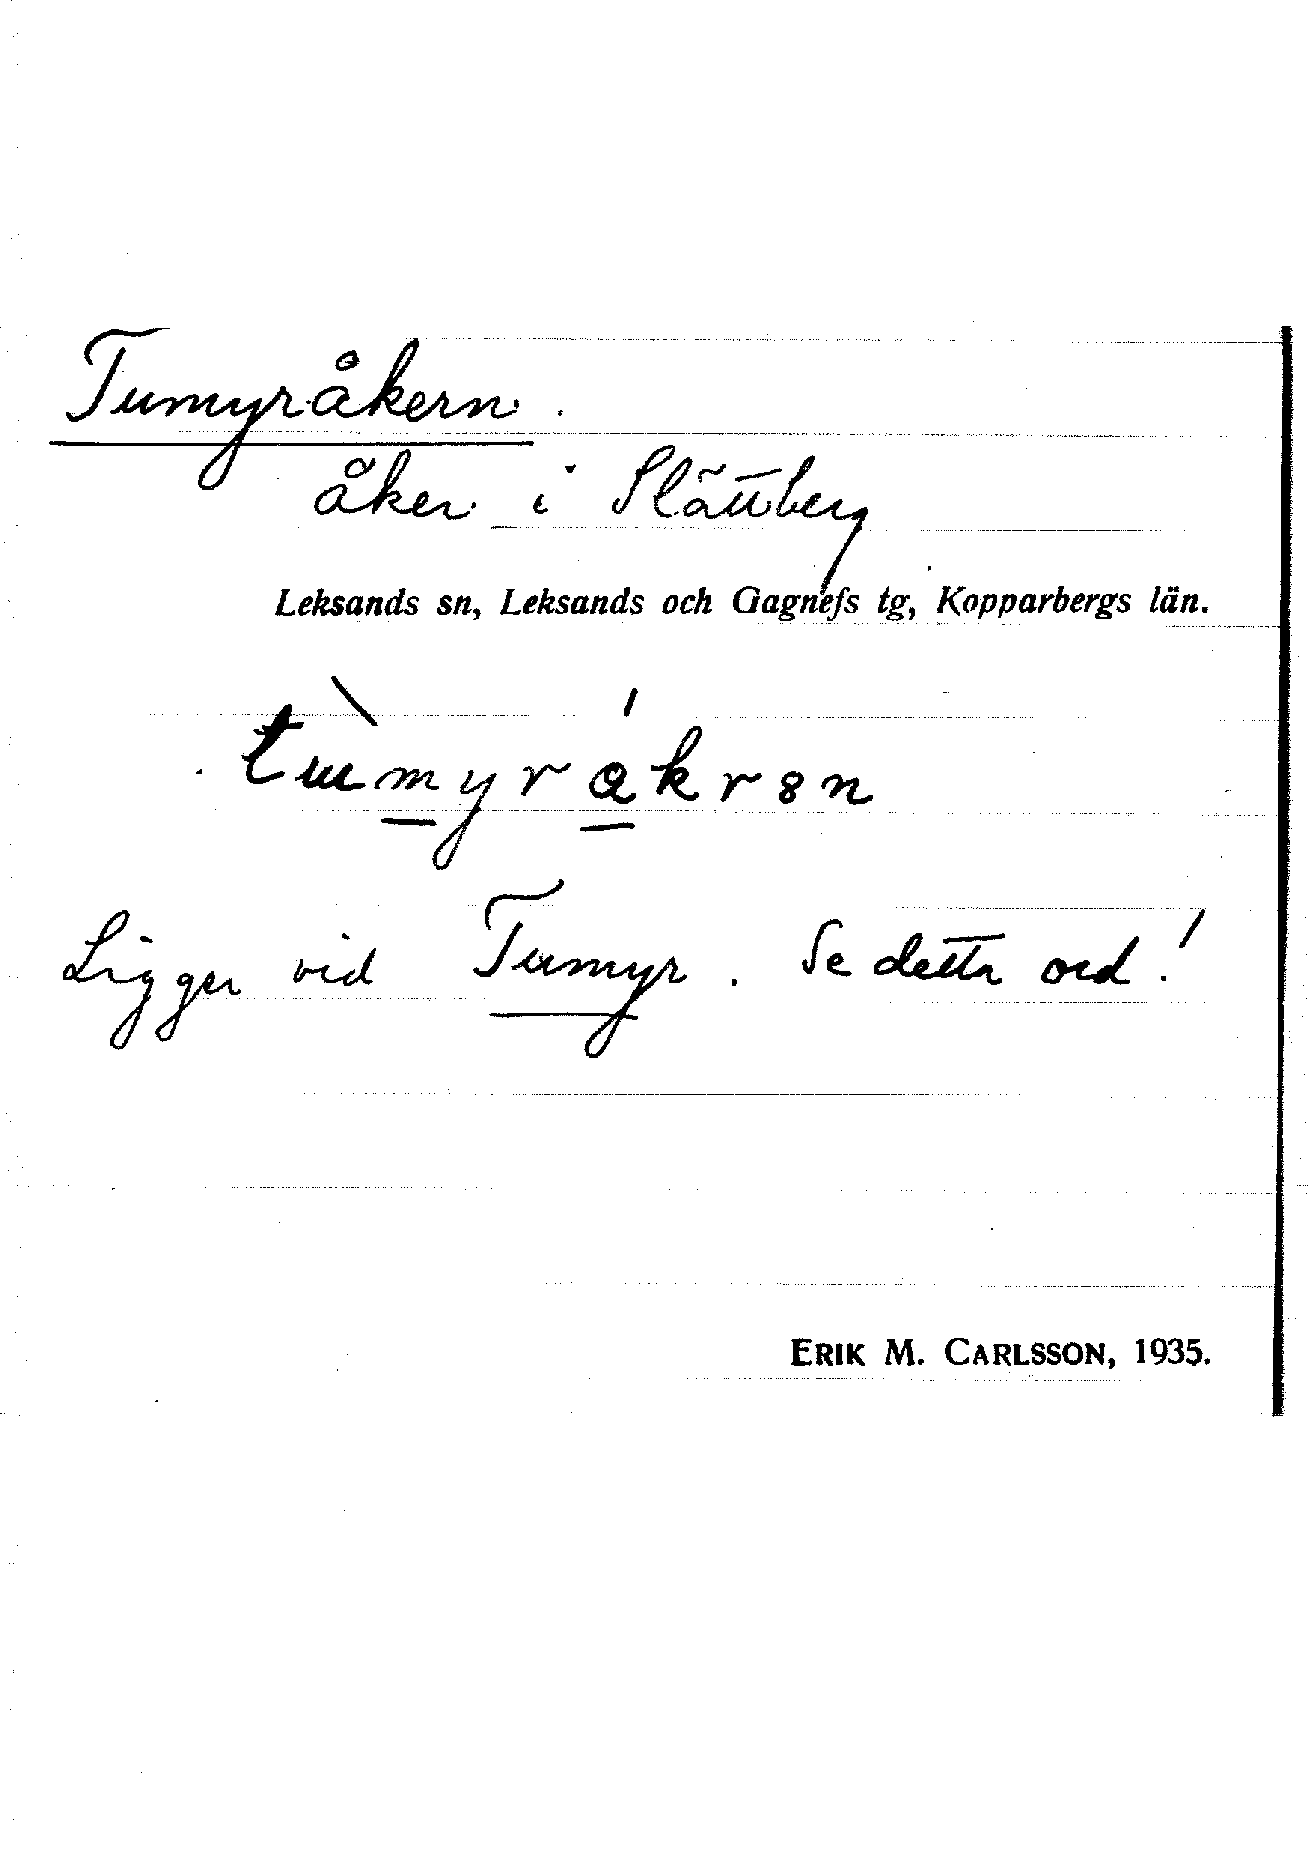 Tumyråkern.
åker i Slättberg
Leksands sn, Leksands och Gagnefs tg, Kopparbergs län.
Ligger vid Tumyr. Se detta ord!
ERIK M. CARLSSON, 1935.